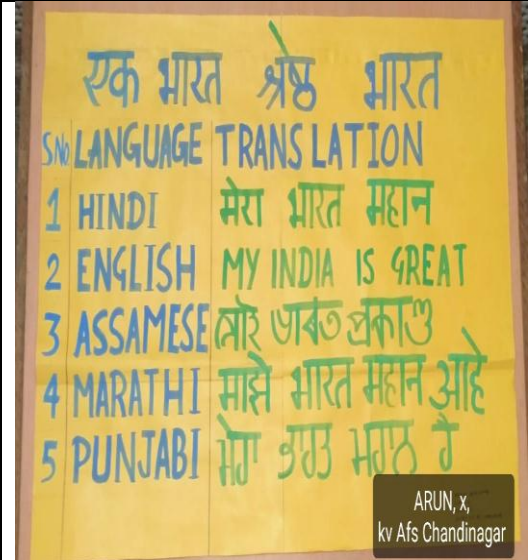 एक भारत श्रेष्ठ भारत
SNo LANGUAGE TRANSLATION
1 HINDI मेरा भारत महान
2 ENGLISH MY INDIA IS GREAT
3 ASSAMESE ভাৰত
4 MARATHI माझे भारत महान आहे
5 PUNJABI ਮੇਰਾ ਭਾਰਤ ਮਹਾਨ ਹੈ
ARUN, x,
kv Afs Chandinagar